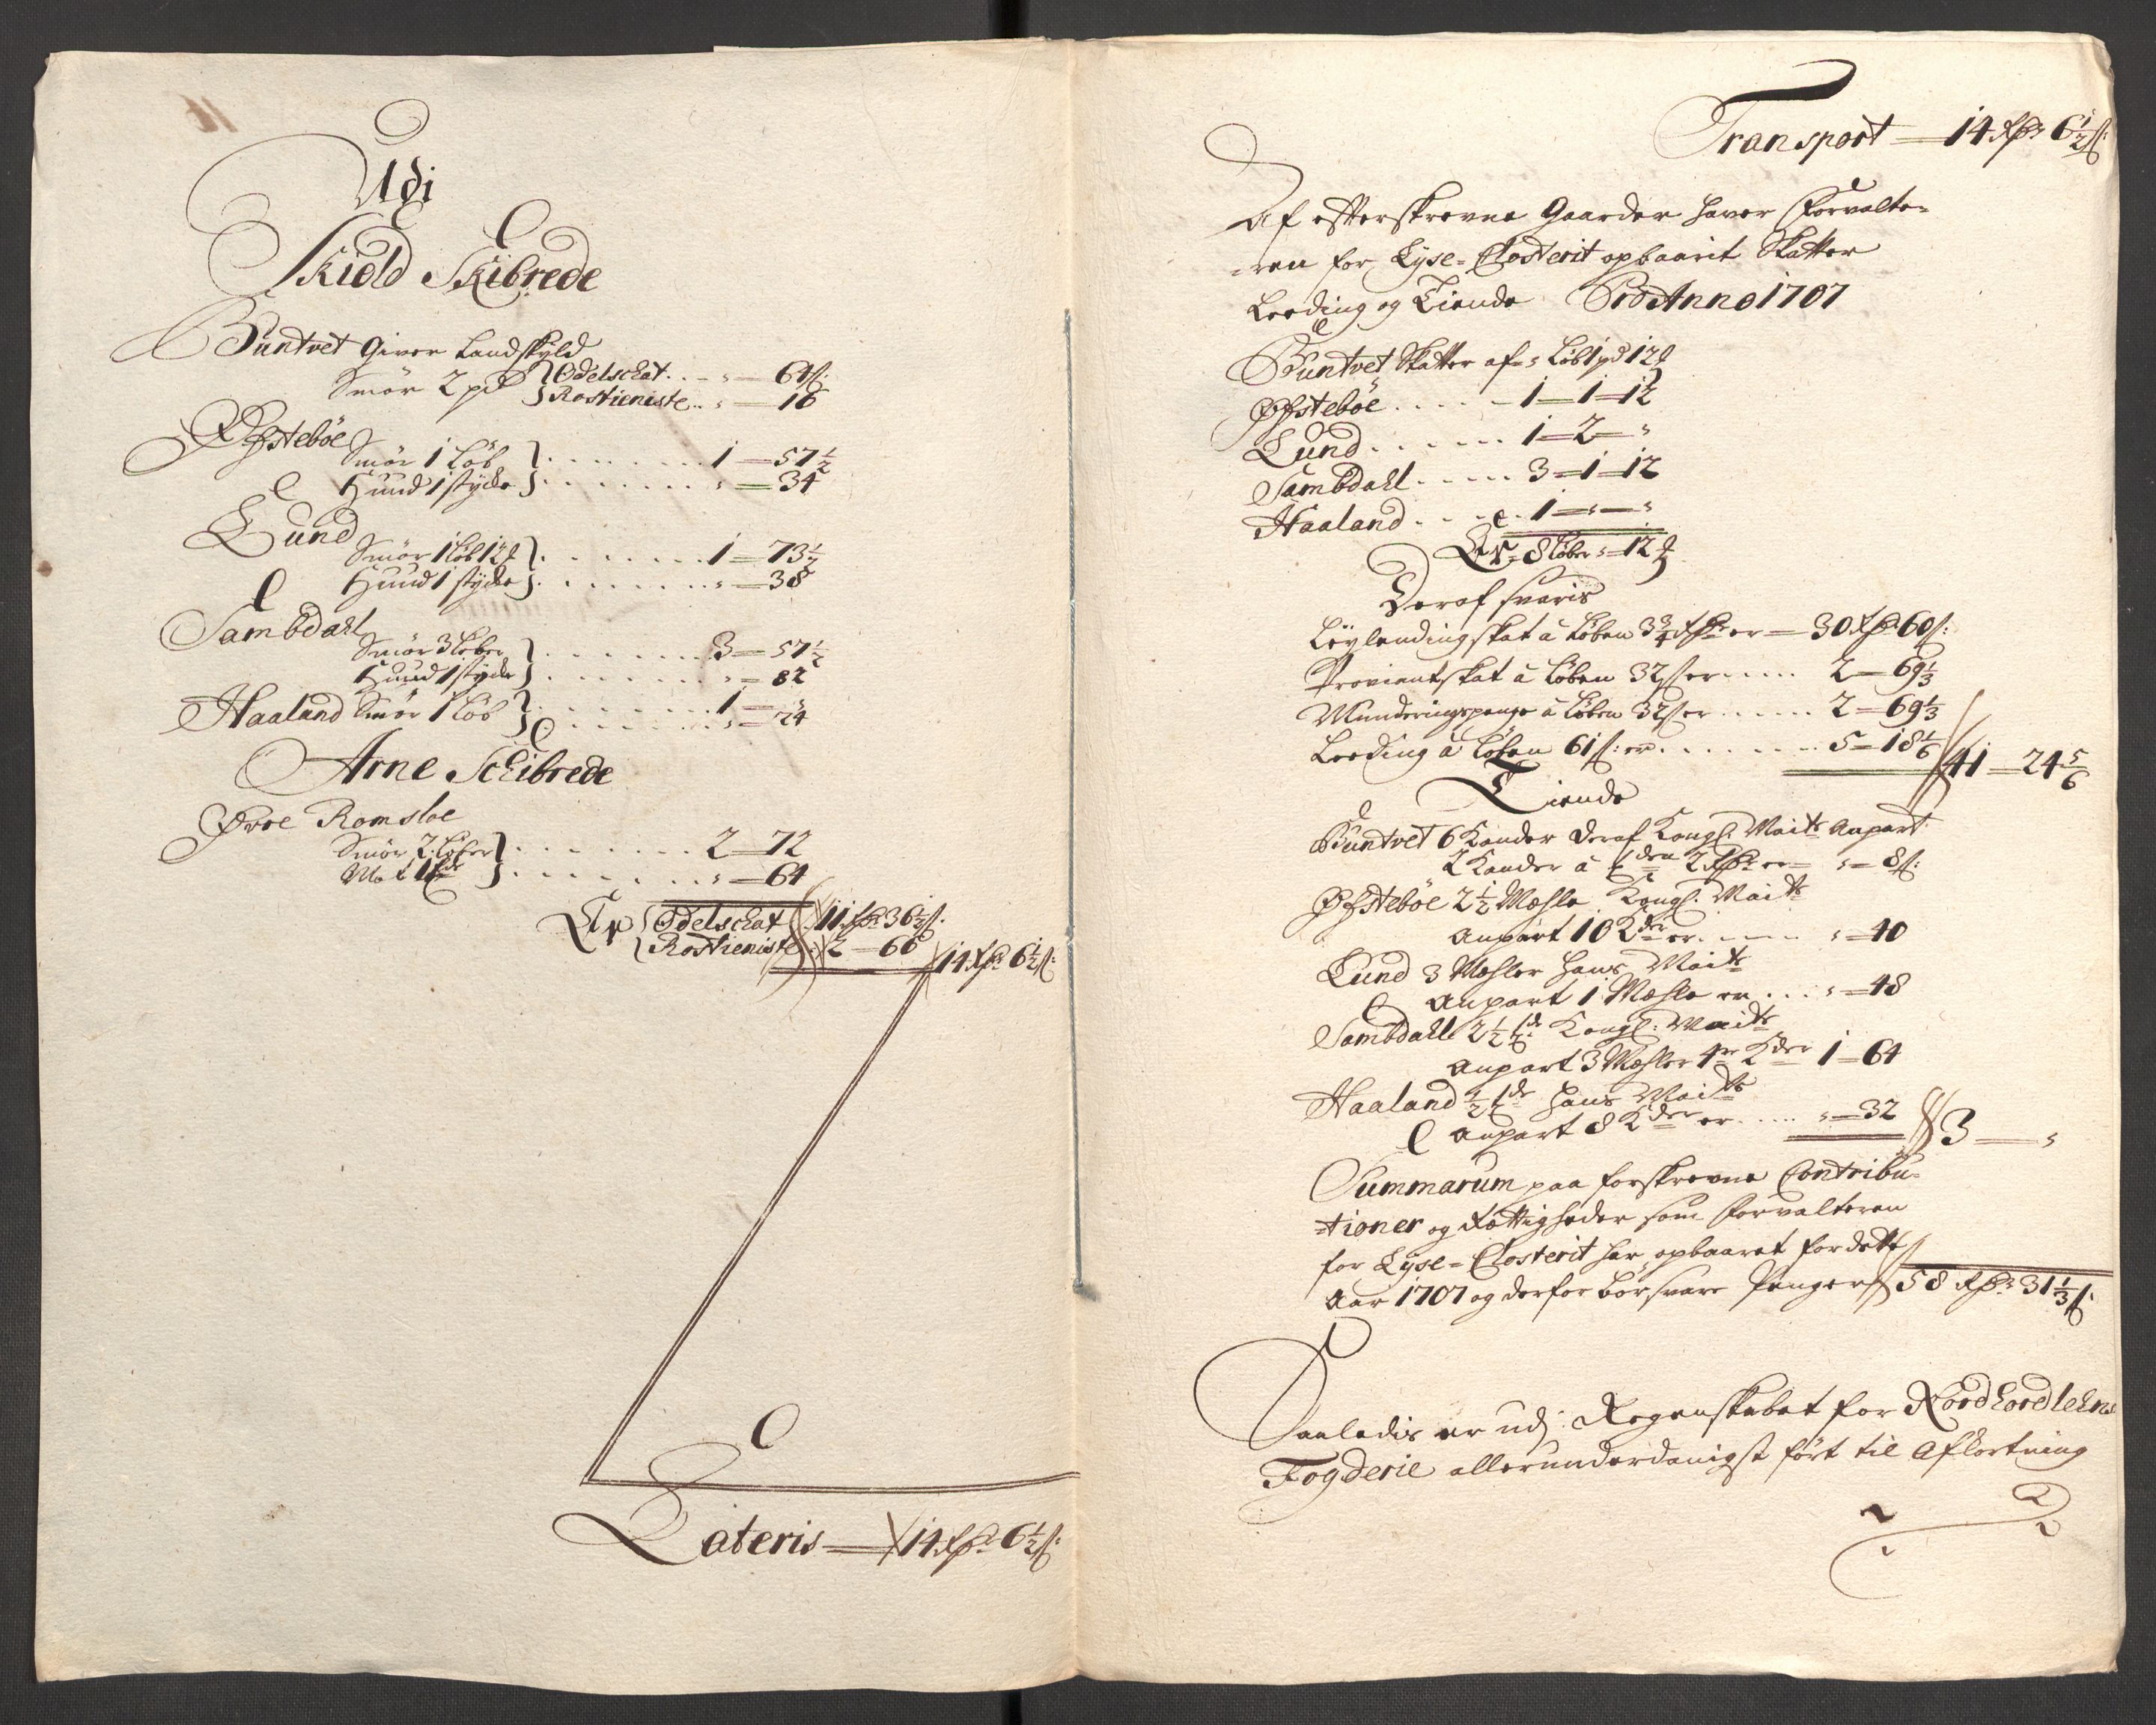 Udi
Skiold Skibrede
Buntvet Giver Landskyld
Smör 2 pd } Odelschat . . - " — 64 ß:
Rostieniste . . " — 16
Øfsteböe
Smör 1 Löb } . . . . . . . 1 — 57 1/2
Huud 1 stycke } . . . . . . . " — 34
Lund
Smör 1 Löb 12 } . . . . . . . 1 — 73 1/2
Huud 1 stycke } . . . . . . . " — 38
Sambdahl
Smör 3 Löber } . . . . . . . 3 — 57 1/2
Huud 1 stycke } . . . . . . . " — 82
Haaland Smör 1 Löb } . . . . . . . 1 — "
. . . . . . . " — 24
Arne Schibrede
Øvre Romsloe
Smör 2 Löber } . . . . . . . 2 — 72
Malt 1 } . . . . . . . " — 64
Er { Odelschat 11 Rdr 36 1/2 ß:
Rostieniste 2 — 66 14 Rdr 6 1/2 ß:
Lateris — 14 Rdr 6 1/2 ß:
Transport — 14 Rdr 6 1/2 ß:
Af efterskrevne Gaarder haver Forvalte-
-ren for Lyse-Closterit opbaarit Skatter
Leeding og Tiende Pro Anno 1707
Buntvet Skatter af - " Löb 1 pd 12
Øfsteböe . . . . . 1 — 1 — 12
Lund . . . . . . 1 — 2 — "
Sambdahl . . . . . 3 — 1 — 12
Haaland . . . . 1 — " — "
Er - 8 Löber " — 12
Deraf svaris
Leylendingskat à Löben 3 3/4 Rdr er — 30 Rdr 60 ß:
Provientskat à Löben 32 ß er . . . . . 2 — 69 1/3
Munderingspenge à Löben 32 ß er . . . . . 2 — 69 1/3
Leeding à Löben 61 ß: er . . . . . . . . 5 — 18 1/6 41 — 24 5/6
Tiende
Buntvet 6 Kander deraf Kongl: Maits Anpart
2 Kander à tden 2 Rdr er — " — 8 ß:
Øfsteböe 2 1/2 Mæhle Kongl: Maits
Anpart 10 Kder er . . . . . " — 40
Lund 3 Mæhler hans Maits
Anpart 1 Mæhle er . . . " — 48
Sambdahl 2 1/2 tde: Kongl: Maits
Anpart 3 Mæhler 4re Kder 1 — 64
Haaland 1/2 tde hans Maits
Anpart 8 Kder er . . . . . " — 32 3 — "
Summarum paa forskrevne Contribu-
-tioner og Rettigheder som Forvalteren
for Lyse-Closterit har opbaaret for dette
Aar 1707 og derfor bör svare Penger 58 Rdr 31 1/3 ß:
Saaledis er udj Regenskabet for Nordhordlehns
Fogderie allerunderdanigst fört til Afkortning